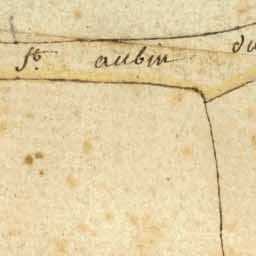 St. aubin du